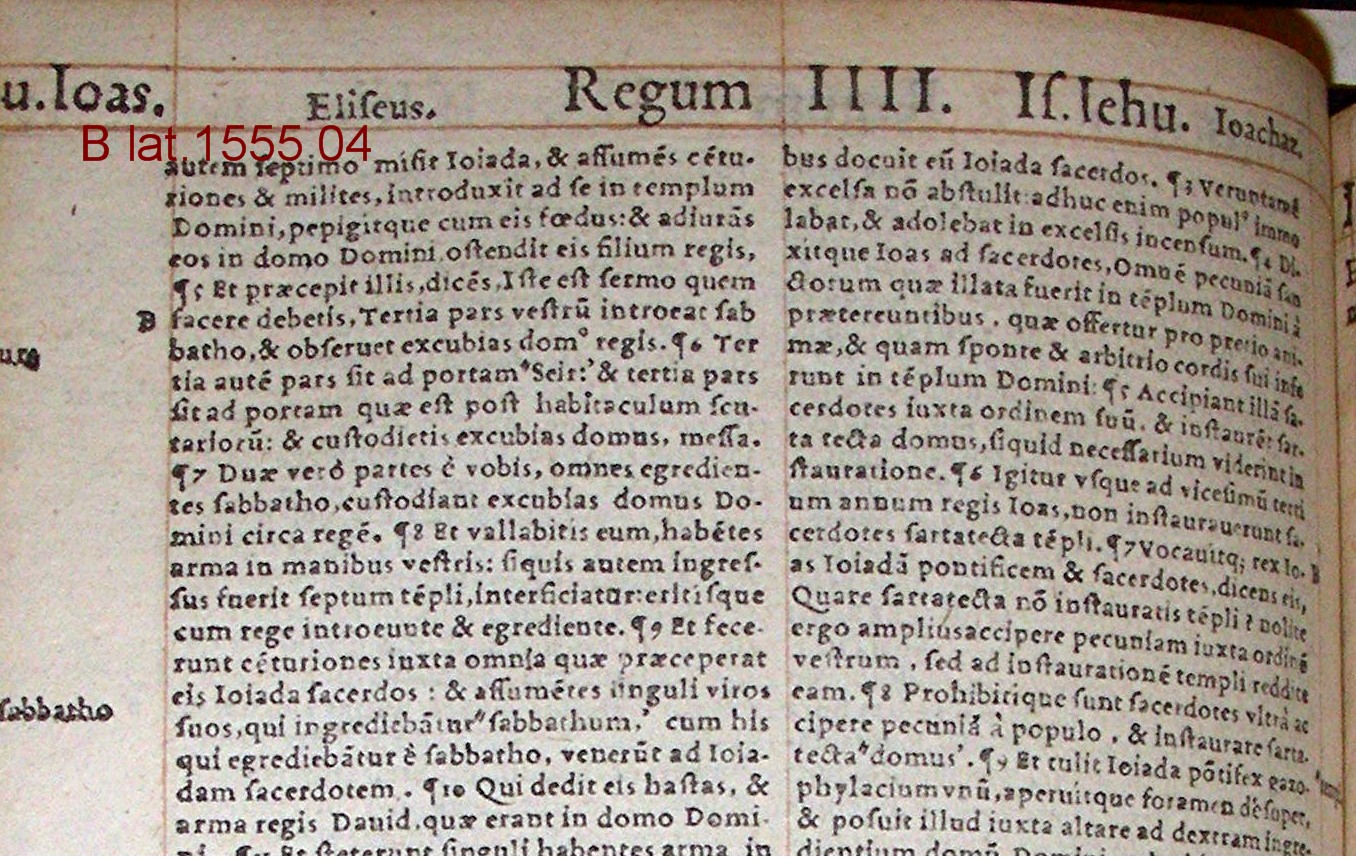 u. Ioas. Eliſeus. Regum IIII. Iſ. Iehu. Ioachaz.
B lat 1555 04
autem ſeptimo miſit Ioiada, & aſſumés cétu-
riones & milites, introduxit ad ſe in templum
Domini, pepigitque cum eis fœdus: & adiurãs
eos in domo Domini, oſtendit eis filium regis,
¶5 Et præcepit illis, dicés, Iſte eſt ſermo quem
B facere debetis, Tertia pars veſtrũ introeat ſab
batho, & obſeruet excubias domꝰ regis. ¶6 Ter
tia auté pars ſit ad portam "Seir:' & tertia pars
ſit ad portam quæ eſt poſt habitaculum ſcu-
tariorũ: & cuſtodietis excubias domus, meſſa.
¶7 Duæ verò partes è vobis, omnes egredien-
tes ſabbatho, cuſtodiant excubias domus Do-
mini circa regé. ¶8 Et vallabitis eum, habétes
arma in manibus veſtris: ſiquis autem ingreſ-
ſus fuerit ſeptum tépli, interficiatur: eritiſque
cum rege introeunte & egrediente. ¶9 Et fece-
runt céturiones iuxta omnia quæ præceperat
eis Ioiada ſacerdos: & aſſumétes ſinguli viros
ſuos, qui ingrediebãtur "ſabbathum,' cum his
qui egrediebãtur è ſabbatho, venerũt ad Ioia-
dam ſacerdotem. ¶10 Qui dedit eis haſtas, &
arma regis Dauid, quæ erant in domo Domi-
ni. Et ſteterunt ſinguli habentes arma in
ſabbatho
bus docuit eũ Ioiada ſacerdos. ¶3 Veruntamé
excelſa nõ abſtulit: adhuc enim populꝰ immo
labat, & adolebat in excelſis incenſum. ¶4 Di-
xitque Ioas ad ſacerdotes, Omné pecuniã ſan
ctorum quæ illata fuerit in téplum Domini à
prætereuntibus, quæ offertur pro pretio ani-
mæ, & quam ſponte & arbitrio cordis ſui infe
runt in téplum Domini: ¶5 Accipiant illã ſa-
cerdotes iuxta ordinem ſuũ, & inſtaurét ſar-
ta tecta domus, ſiquid neceſſarium viderint in
ſtauratione. ¶6 Igitur vſque ad viceſimũ terti
um annum regis Ioas, non inſtaurauerunt ſa-
cerdotes ſartatecta tépli. ¶7 Vocauitq; rex Io- B
as Ioiadã pontificem & ſacerdotes, dicens eis,
Quare ſartatecta nõ inſtauratis tépli? nolite
ergo ampliusaccipere pecuniam iuxta ordiné
veſtrum, ſed ad inſtaurationé templi reddite
eam. ¶8 Prohibitique ſunt ſacerdotes vltrà ac
cipere pecuniã à populo, & inſtaurare ſarta-
tecta "domus'. ¶9 Et tulit Ioiada põtifex gazo-
phylacium vnũ, aperuitque foramen déſuper,
& poſuit illud iuxta altare ad dextram ingre-
dientium domũ